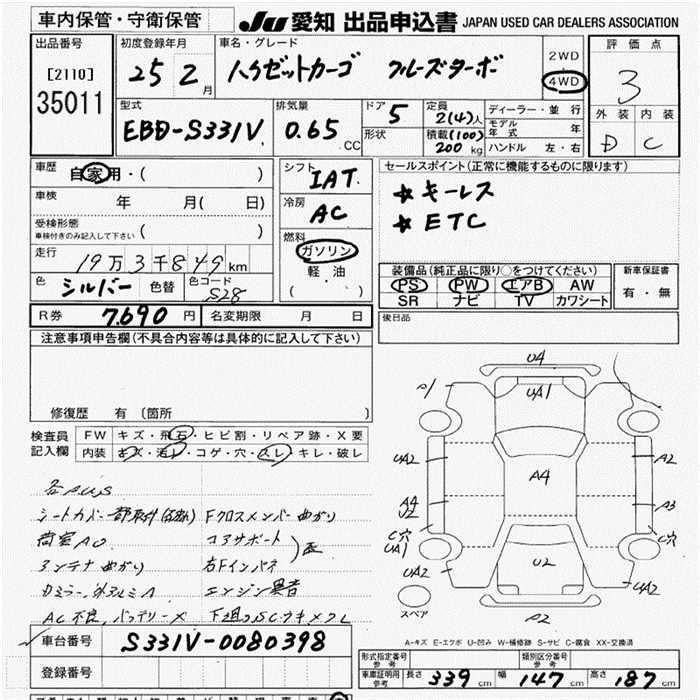 車内保管・守衛保管
JU 愛知 出品申込書 JAPAN USED CAR DEALERS ASSOCIATION
出品番号
[2110]
35011
初度登録年月
25 2月
車名・グレード
ハイゼットカーゴ クルーズターボ
2WD
4WD
評価点
3
外装 内装
D C
型式
EBD-S331V
排気量
0.65 CC
ドア 5
形状
定員 2(4)人
積載(100)
200 kg
ディーラー・並行
モデル年式 年
ハンドル 左・右
車歴
自家用・( )
車検
年 月( 日)
受検形態
車検付きのみ記入して下さい ( )
走行
19万3千849km
色 シルバー 色替 色コード S28
シフト
IAT
冷房
AC
燃料
ガソリン
軽油
( )
セールスポイント(正常に機能するものに限ります)
☆キーレス
☆ETC
装備品(純正品に限り○をつけてください)
PS PW エアB AW
SR ナビ TV カワシート
新車保証書
有・無
R券 7,690円 名変期限 月 日
後日品
注意事項申告欄(不具合内容等は具体的に記入して下さい)
修復歴 有 〔箇所 〕
検査員記入欄
FW キズ・飛石・ヒビ割・リペア跡・X要
内装 キズ・汚レ・コゲ・穴・スレ・キレ・破レ
各P,U,S
シートカバー一部取付
荷室AU
アンテナ曲がり
AC不良,バッテリーX
Fクロスメンバー曲がり
コアサポート
右Fインパネ
エンジン異音
U4
UA1
P1
UA2
A4
U2
C穴
UA1
UA2
A4
U2
A2
A3
C穴
UA2
P2
スペア
A-キズ E-エクボ U-凹み W-補修跡 S-サビ C-腐食 XX-交換済
車台番号 S331V-0080398
登録番号
形式指定番号 参考
類別区分番号 参考
車庫証明用 参考 長さ 339cm 幅 147cm 高さ 187cm